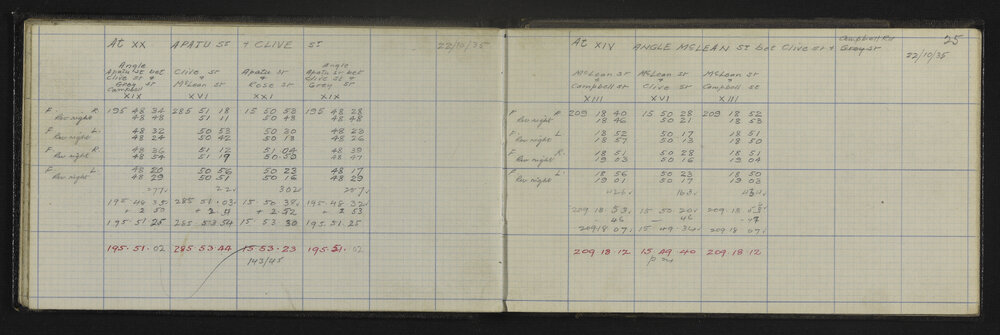 At XX APATU ST + CLIVE ST 22/10/35
Angle Angle
Apatu St bet Clive St Apatu St Apatu St bet
Clive St & + + Clive St &
Grey St McLean St Rose St Grey St
Campbell
XIX XVI XXI XIX
F R. 195 48 34 285 51 18 15 50 53 195 48 28
Rev right 48 48 51 11 50 48 48 48
F L. 48 32 50 53 50 30 48 23
Rev right 48 24 50 42 50 13 48 26
F. R. 48 36 51 12 51 04 48 39
Rev right 48 54 51 19 50 59 48 47
F L. 48 20 50 56 50 23 48 17
Rev right 48 29 50 51 50 16 48 29
277✓ 22✓ 302 257✓
195 48 35 285 51 03 15 50 38✓ 195 48 32✓
+ 2 50 + 2 51 + 2 52 + 2 53
195 51 25 285 53 54 15 53 30 195 51 25
195. 51. 02 285 53 44 15 53 23 195 51. 02
143/45
25
Campbell Rd
At XIV ANGLE McLEAN ST bet Clive St & Grey St
22/10/35
McLean St McLean St McLean St
+ + +
Campbell St Clive St Campbell St
XIII XVI XIII
F R 209 18 40 15 50 28 209 18 52
Rev right 18 46 50 21 18 53
F L. 18 52 50 17 18 51
Rev right 18 57 50 13 18 50
F R. 18 51 50 28 18 51
Rev right 19 03 50 16 19 04
F L. 18 56 50 23 18 50
Rev right 19 01 50 17 19 03
426✓ 163✓ 434✓
209 18 53✓ 15 50 20✓ 209 18 53✓
46 — 46 -47
209 18 07✓ 15 49 34✓ 209 18 07✓
209 18 12 15 49 40 209 18 12